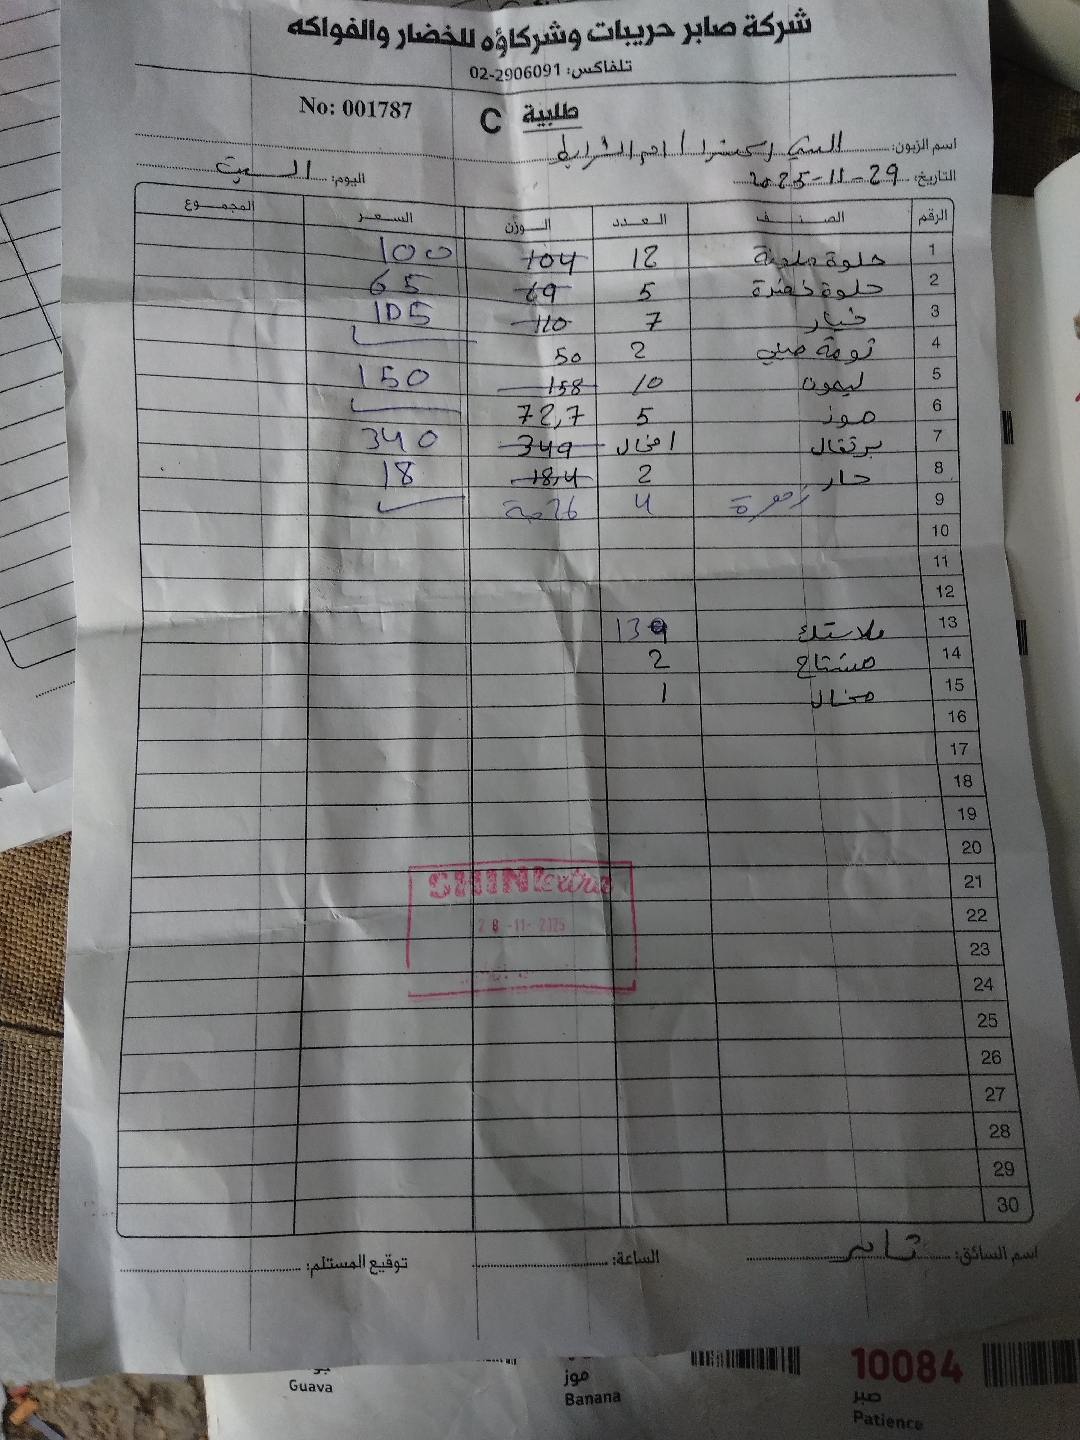 شركة صابر حريبات وشركاؤه للخضار والفواكه
تلفاكس: 02-2906091
طلبية C No: 001787
اسم الزبون: / ام الشرايط
التاريخ: 29-11-2025 اليوم: السبت
الرقم الصنف العدد الوزن السعر المجموع
1 حلوة ملونة 12 104 100
2 حلوة خضرة 5 69 65
3 خيار 7 110 105
4 تومة صيني 2 50
5 ليمون 10 158 150
6 موز 5 72,7
7 برتقال 1 مخال 349 340
8 حار 2 18,4 18
9 زهرة 4 26 حبة
10
11
12
13 بلاستك 139
14 مشتاح 2
15 مخال 1
16
17
18
19
20
21
22
23
24
25
26
27
28
29
30
SHINI extra
28-11-2025
اسم السائق: ثائر الساعة: توقيع المستلم:
Guava
موز
Banana
10084
صبر
Patience